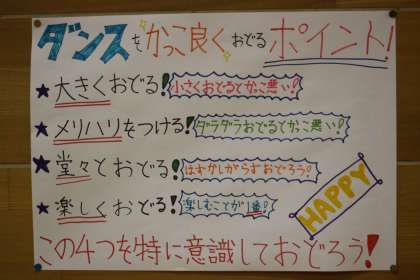 ダンスをかっこ良くおどるポイント!
★大きくおどる!小さくおどるとかっこ悪い!
★メリハリをつける!ダラダラおどるとかっこ悪い!
★堂々とおどる!はずかしがらずおどろう!
★楽しくおどる!楽しむことが1番!
HAPPY
この4つを特に意識しておどろう!